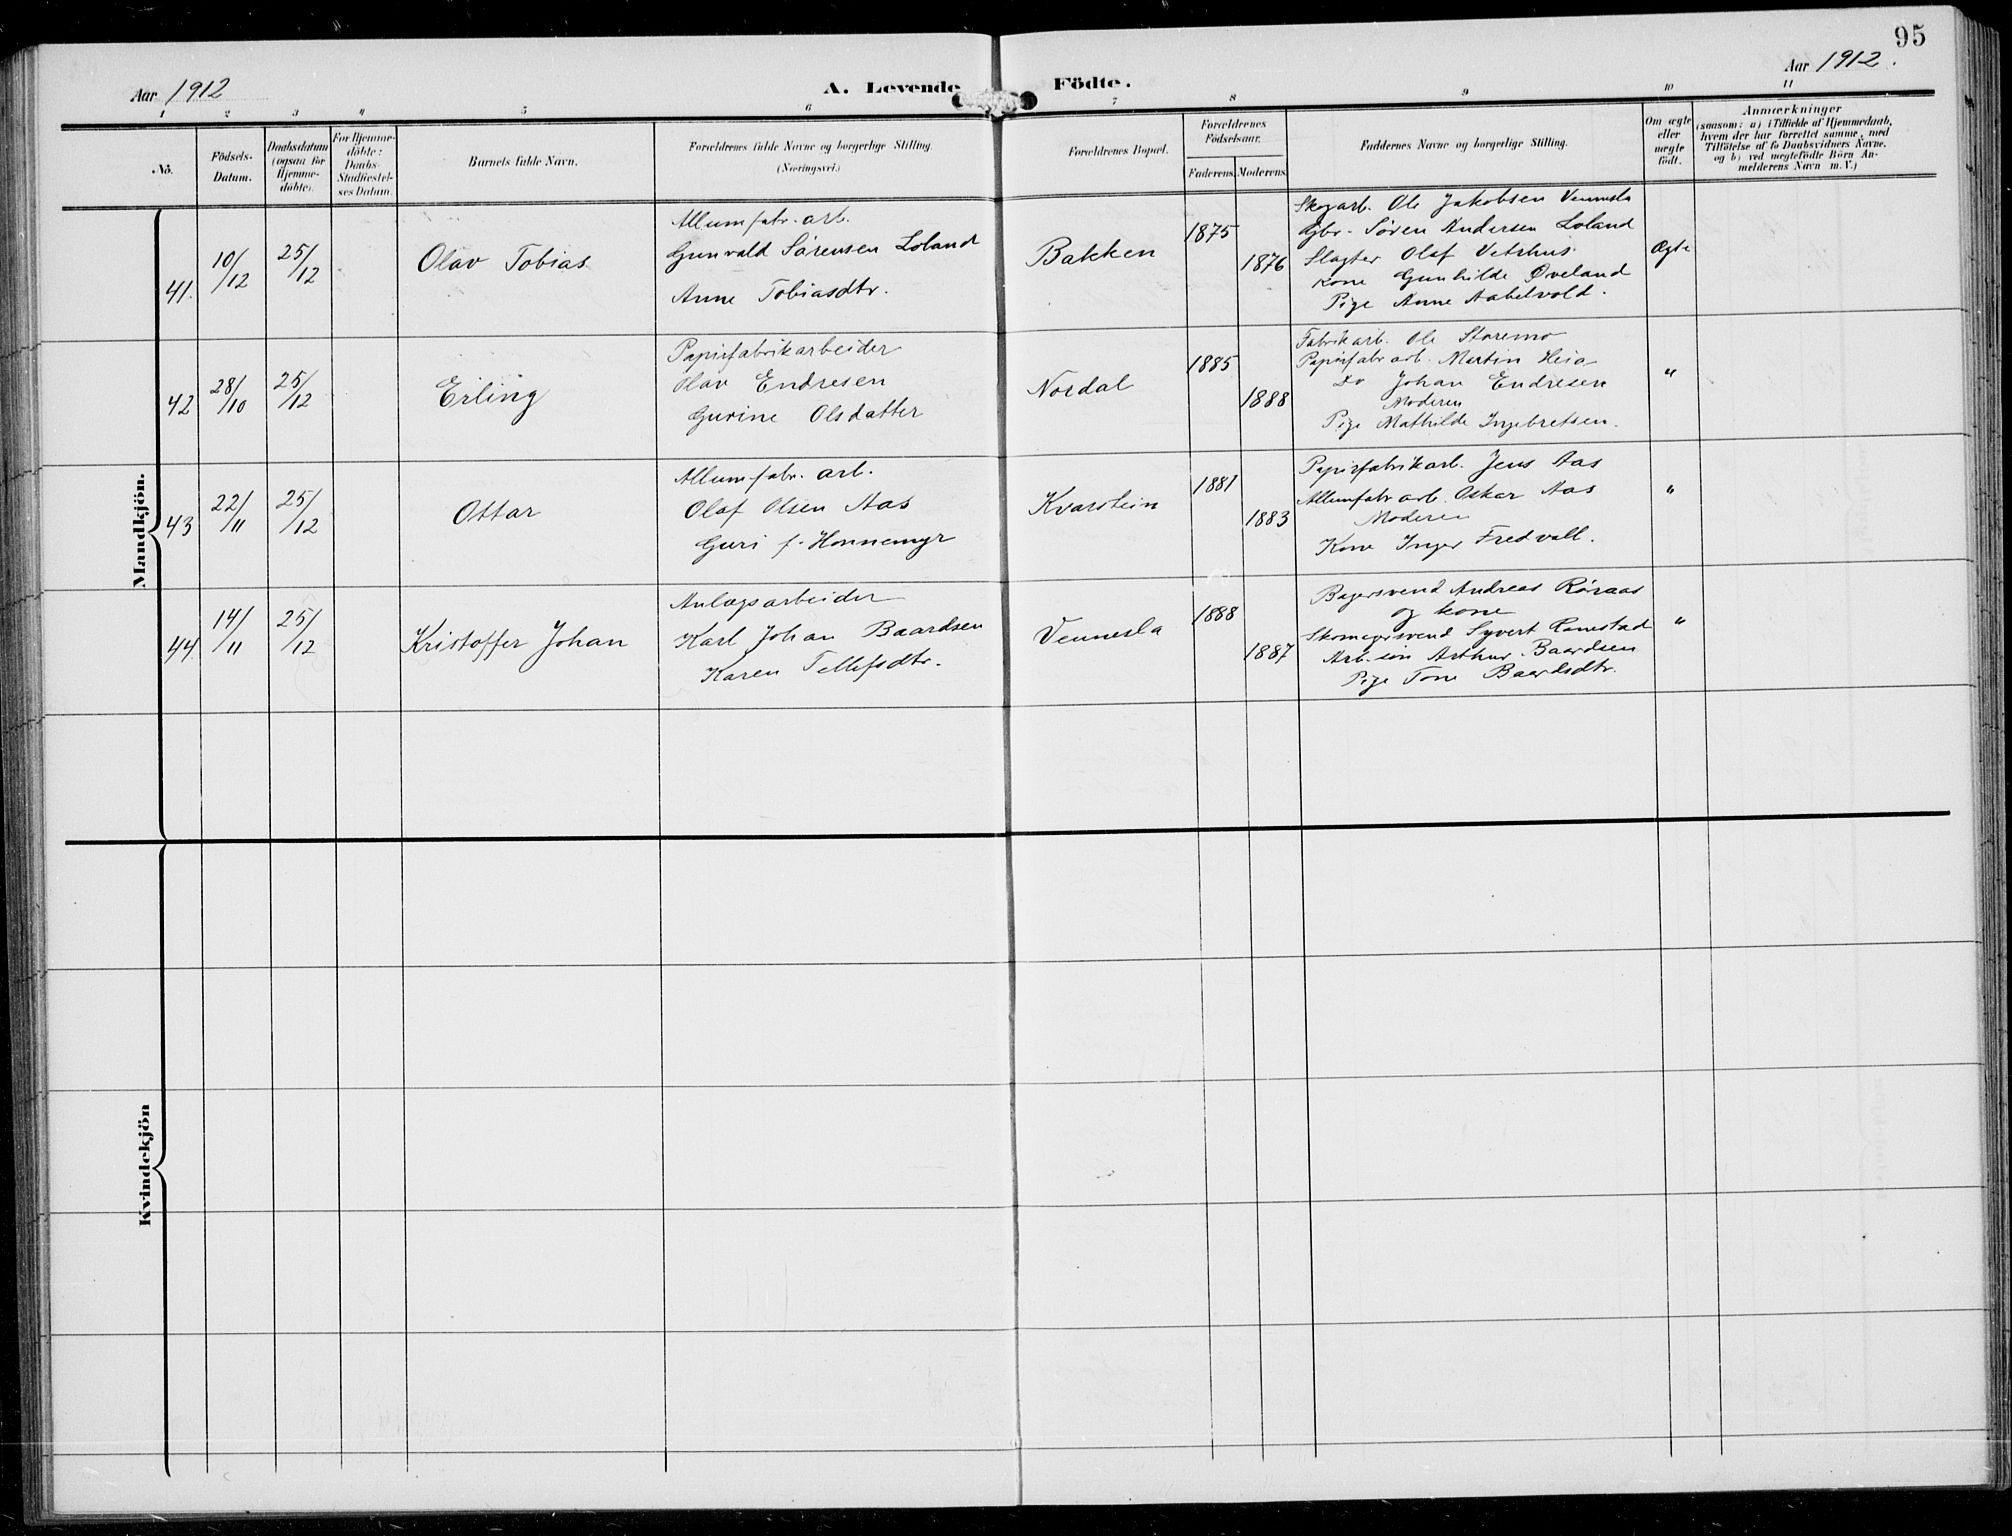 95
Aar 1912
A. Levende Födte.
Aar 1912.
1 2 3 4 5 6 7 8 9 10 11
No.
Födsels-Datum.
Daabsdatum (ogsaa for Hjemme-döbte).
For Hjemme-döbte: Daabs-Stadfæstel-ses Datum.
Barnets fulde Navn.
Forældrenes fulde Navne og borgerlige Stilling.
(Næringsvei.)
Forældrenes Bopæl.
Forældrenes Födselsaar.
Faderens. Moderens.
Faddernes Navne og borgerlige Stilling.
Om ægte eller uægte födt.
Anmærkninger
(saasom: a) i Tilfælde af Hjemmedaab,
hvem der har forrettet samme, med
Tilföielse af to Daabsvidners Navne.
og b) ved uægtefödte Börn An-
melderens Navn m. V.)
Mandkjön.
41. 10/12 25/12 Olav Tobias
Allumfabr. arb.
Gunvald Sørensen Loland
Anne Tobiasdtr.
Bakken
1875
1876
Skogarb. Ole Jakobsen Vennesla
Gbr. Søren Andersen Loland
Slagter Olaf Vetrhus
Kone Gunhilde Øveland
Pige Anne Aabelvold.
Ægte
42 28/10 25/12 Erling
Papirfabrikarbeider
Olav Endresen
Gurine Olsdatter
Nordal
1885
1888
Fabrikarb. Ole Storemo
Papirfabr arb. Martin Heia
Do Johan Endresen
Moderen
Pige Mathilde Ingebretsen.
"
43 22/11 25/12 Ottar
Allumfabr. arb.
Olaf Olsen Aas
Guri f. Honnemyr
Kvarstein
1881
1883
Papirfabrikarb. Jens Aas
Allumfabr arb. Oskar Aas
Moderen
Kone Inger Fredvall.
"
44. 14/11 25/12 Kristoffer Johan
Anlægsarbeider
Karl Johan Baardsen
Karen Tellefsdtr.
Vennesla
1888
1887
Bagersvend Andreas Røraas
og kone
Skomagersvend Syvert Ramstad
Arb. søn Arthur Baardsen
Pige Tone Baardsdtr.
"
Kvindekjön